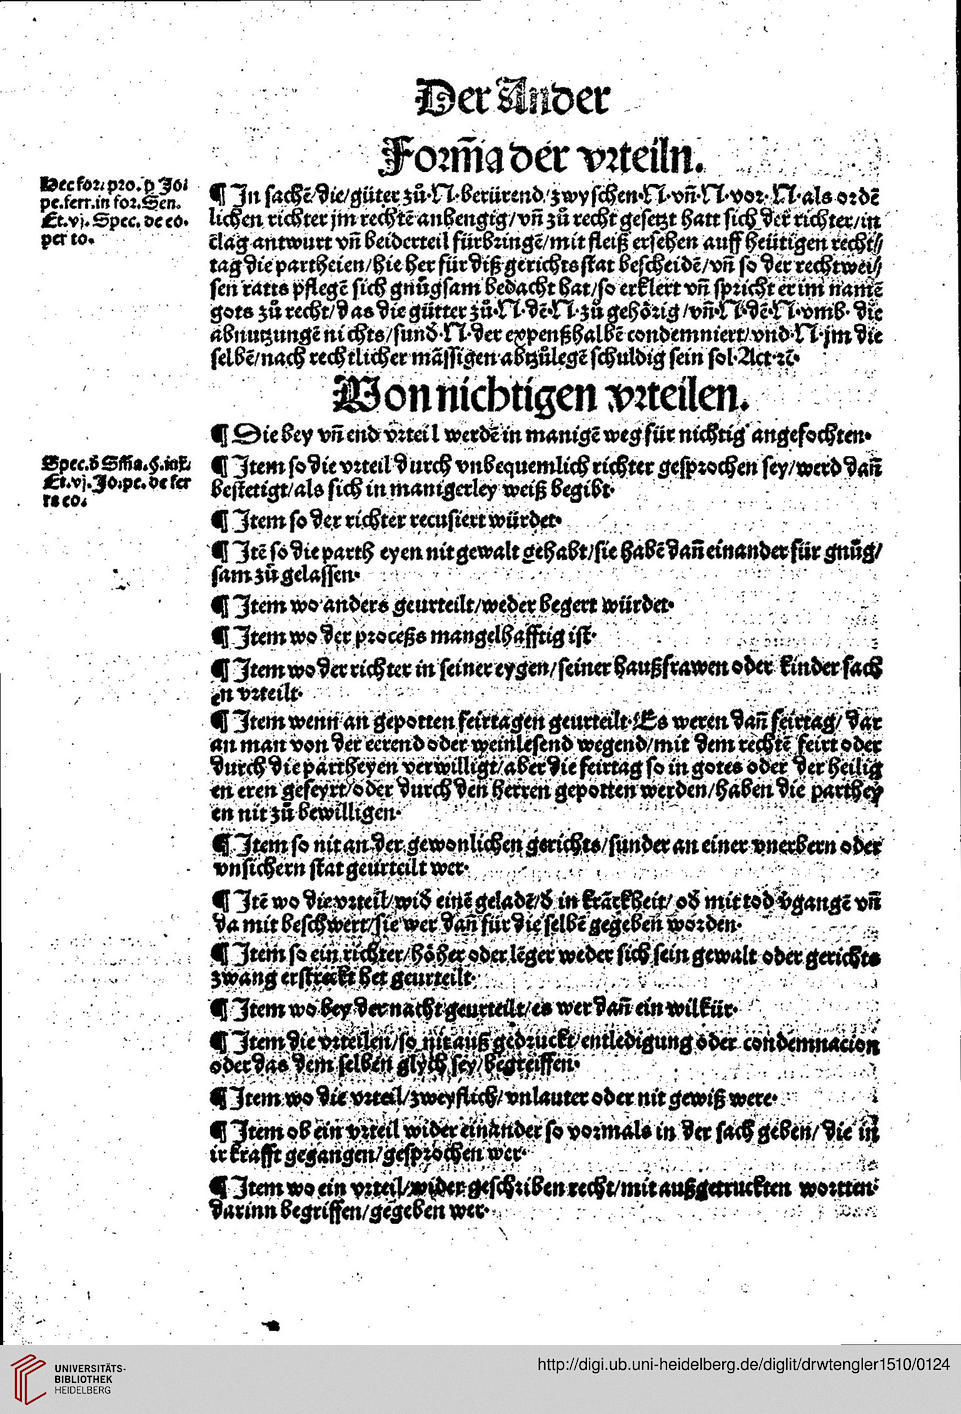 Der Ander
Form̄a der vrteiln.
Hec for. pro. ꝺ Joı
pe. ferr. in for. Sen.
Et. vj. Spec. de eo.
per to.
¶ In sachē/die/güter zů·N·berürend/zwyschen·N·vn̄·N·vor·N·als ordē
lichen richter jm rechtē anhengig/vn̄ zů recht gesetzt hatt sich der richter/in
clag antwurt vn̄ beiderteil fürbringē/mit fleiß ersehen auff heütigen recht//
tag die partheien/hie her für diß gerichts stat bescheidē/vn̄ so der rechtwei//
sen ratts pflegē sich gnůgsam bedacht hat/so erklert vn̄ spricht er im namē
gots zů recht/das die gütter zů·N·dē·N·zů gehörig/vn̄·N·dē·N·vmb· die
abnutzungē nichts/sund·N·der expenßhalbē condemniert/vnd·N·jm die
selbē/nach rechtlicher mässigen abzůlegē schuldig sein sol·Act·ꝛē·
Von nichtigen vrteilen.
¶ Die bey vn̄ end vrteil werdē in manigē weg für nichtig angefochten·
Spec. de Et. vj. Jo. pe. de fer
re eo.
¶ Item so die vrteil durch vnbequemlich richter gesprochen sey/werd dan̄
bestetigt/als sich in manigerley weiß begibt·
¶ Item so der richter recusiert würdet·
¶ Itē so die partheyen nit gewalt gehabt/sie habē dan̄ einander für gnůg/
sam zů gelassen·
¶ Item wo anders geurteilt/weder begert würdet·
¶ Item wo der proceßs mangelhafftig ist·
¶ Item wo der richter in seiner eygen/seiner haußfrawen oder kinder sach
en vrteilt·
¶ Item wenn an gepotten feirtagen geurteilt·Es weren dan̄ feirtag/ dar
an man von der eerend oder weinlesend wegend/mit dem rechtē feirt oder
durch die partheyen verwilligt/aber die feirtag so in gotes oder der heilig
en eren gefeyrt/oder durch den herren gepotten werden/haben die parthey
en nit zů bewilligen·
¶ Item so nit an der gewonlichen gerichts/sunder an einer vnerbern oder
vnsichern stat geurteilt wer·
¶ Itē wo die vrteil/wid einē geladē/ꝺ in kräckheit/ od mit tod ꝟgangē vn̄
da mit beschwert/sie wer dan̄ für die selbē gegeben worden·
¶ Item so ein richter/höher oder leger weder sich sein gewalt oder gerichts
zwang erstreckt het geurteilt·
¶ Item wo bey der nacht geurteilt/es wer dan̄ ein wilkür·
¶ Item die vrteilen/so nit auß gedruckt/entledigung oder condemnacion
oder das dem selben glych sey/begreiffen·
¶ Item wo die vrteil/zweyflich/vnlauter oder nit gewiß were·
¶ Item ob ein vrteil wider einander so vormals in der sach geben/die in
ir krafft gegangen/gesprochen wer·
¶ Item wo ein vrteil/wider geschriben recht/mit außgetruckten wortten
darinn begriffen/gegeben wer·
UNIVERSITÄTS-
BIBLIOTHEK
HEIDELBERG
http://digi.ub.uni-heidelberg.de/diglit/drwtengler1510/0124